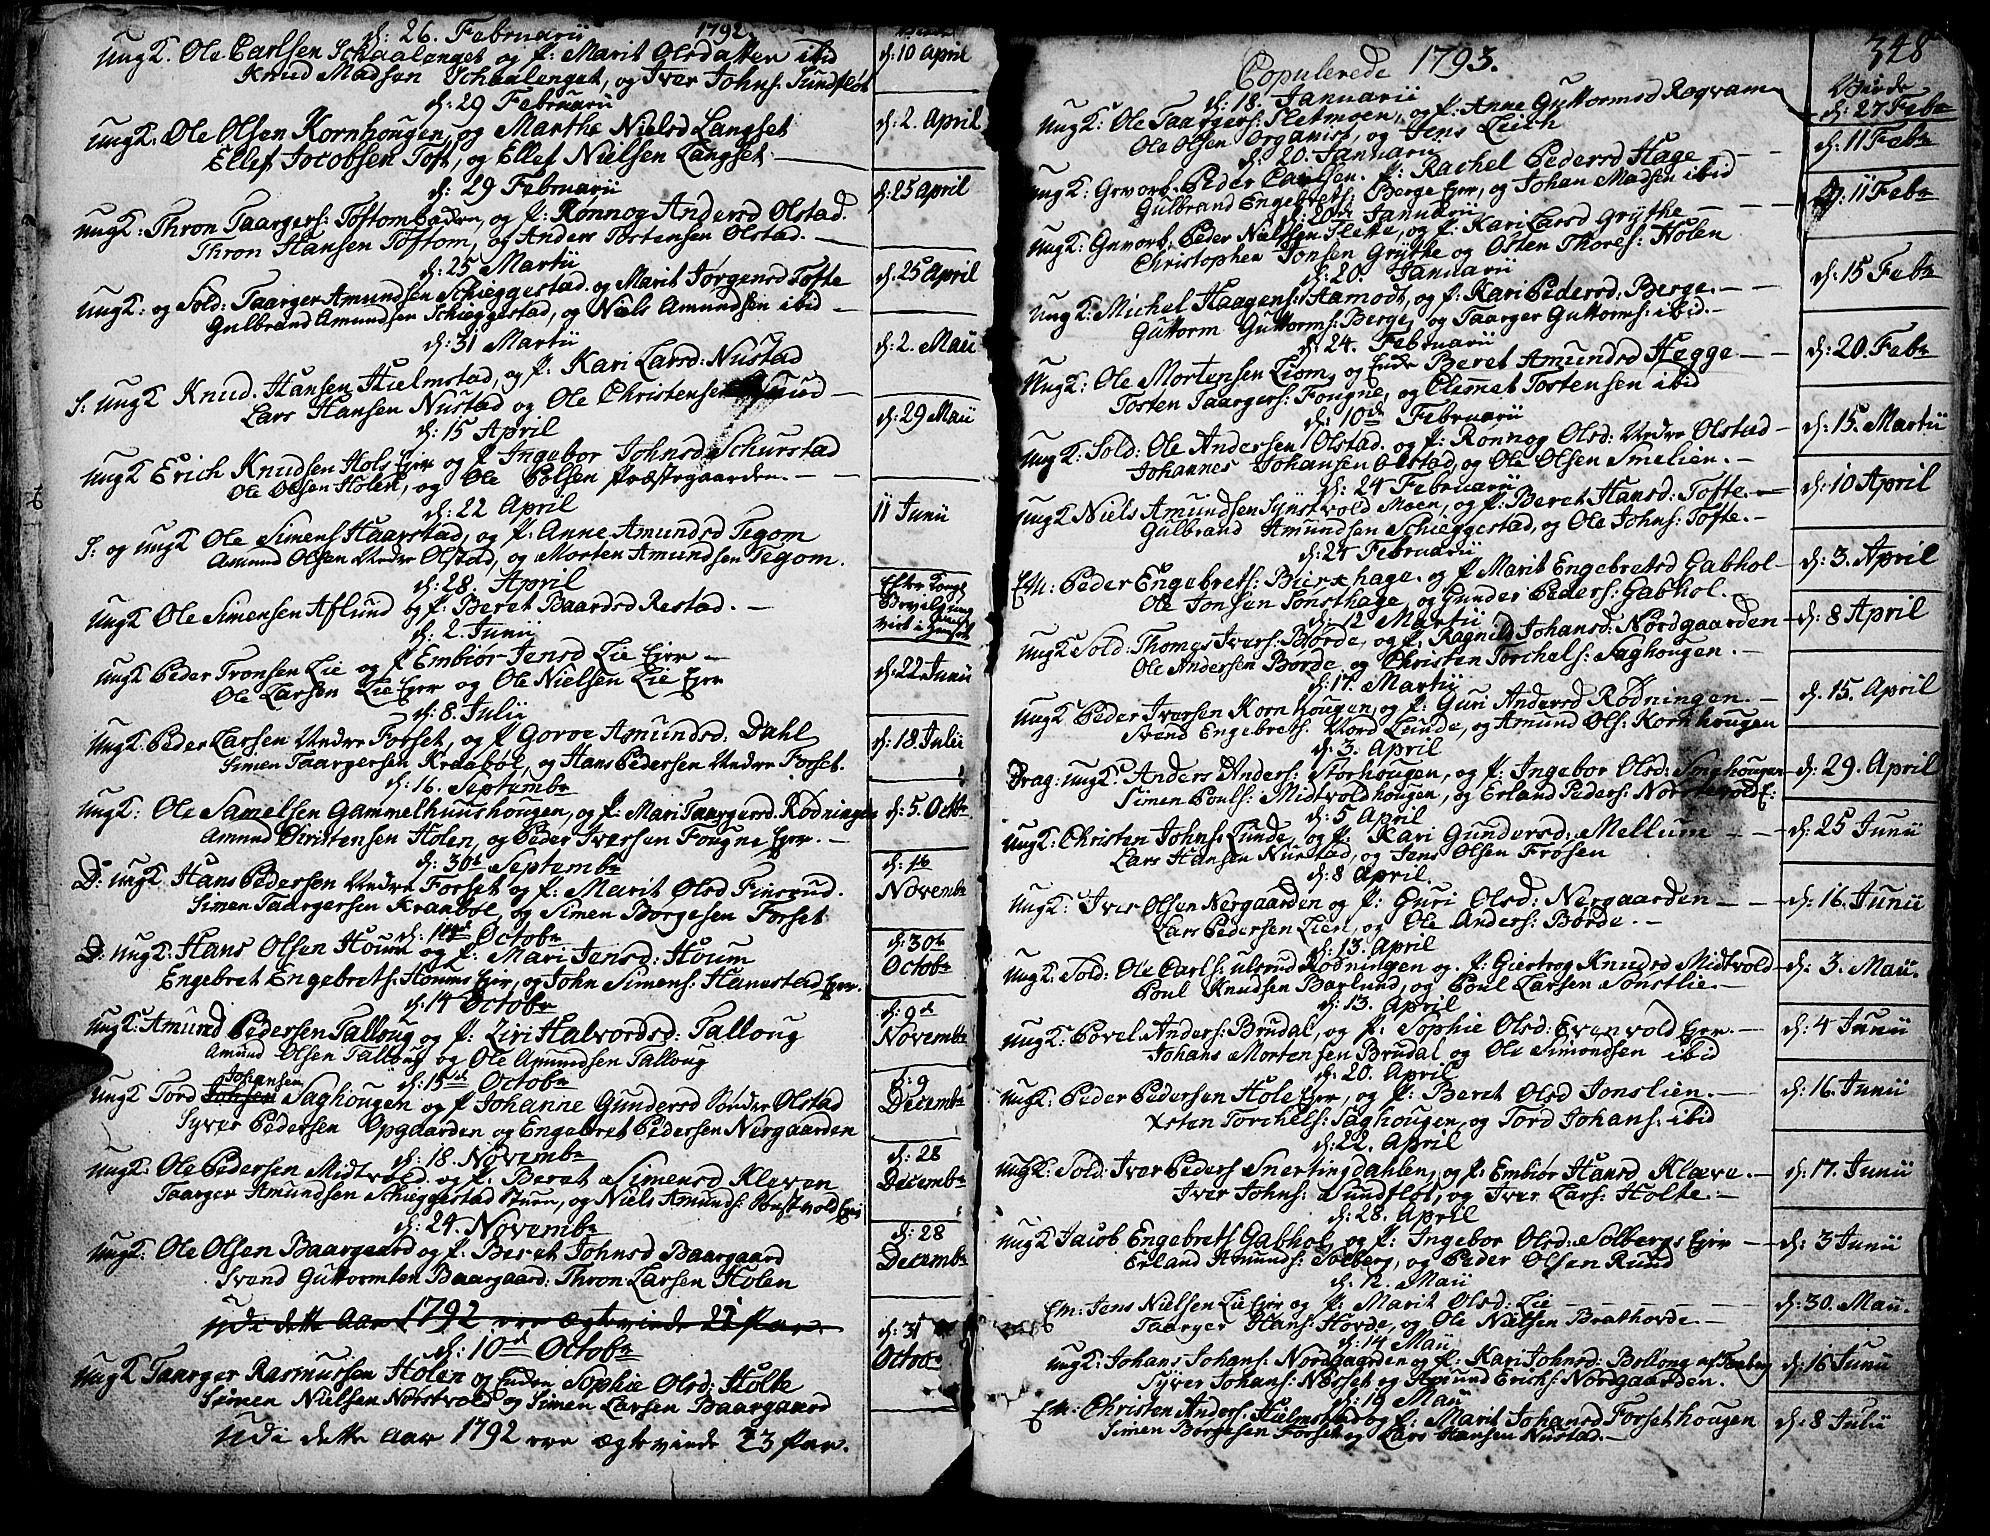 d: 26. Februarii 1792.
ungK. Ole Carlsen Schaalenget og p: Marit Olsdatter ibid
d: 10 April
Knud Madsen Schaalenget, og Iver Johns: Sundfløt
d: 29 Februarii
ungK: Ole Olsen Kornhougen, og Marthe Nielsd Langset
d: 2. April
Ellef Jocobsen Toft, og Ellef Nielsen Langset.
d: 29 Februarii
ungK: Thron Taargers: Toftom, og p: Rønnog Andersd Olstad.
d: 25 April
Thron Hansen Toftom, og Anders Tostensen Olstad.
d: 25 Martii
ungK: og Sold: Taarger Amundsen Schieggestad og Marit Jørgensd Tofte
d: 25 April
Gulbrand Amundsen Schieggestad, og Niels Amundsen ibid
d: 31 Martii
S: ungK Knud Hansen Hielmstad, og p: Kari Larsd: Nustad
d: 2. Maii
Lars Hansen Nustad og Ole Christensen
d: 15 April
ungK Erich Knudsen Hols Eyer og p: Ingebor Johnsd Schurstad
d: 29 Maii
Ole Olsen Holen, og Ole Polsen Præstegaarden.
d: 22 April
S: og ungK Ole Simens Haarstad, og p: Anne Amundsd Tegom
11 Junii
Amund Olsen Nedre Olstad, og Morten Amundsen Tegom.
d: 28. April
ungK Ole Simensen Aflund og p: Beret Baardsd Restad.
d: 2. Junii
ungK Peder Tronsen Lie og p Embiør Jensd Lie Eyer
d: 22 Junii
Ole Larsen Lie Eyer og Ole Nielsen Lie Eyer
d: 8. Julii
ungK. Peder Larsen Nedre Forset, og p Goroe Amundsd. Dahl
d: 18 Julii
Simen Taargersen Kraabøl, og Hans Pedersen Nedre Forset.
d: 16. Septembr
ungK: Ole Samelsen Gammelhuushougen, og p: Mari Taargersd. Rødningen
d: 5. Octbr
Amund Christensen Holen, og Peder Iversen Fougne Eyer.
d: 30t Septembr
D: ungK Hans Pedersen Nedre Forset og p: Marit Olsd Finsrud.
d: 1t Novembr
Simen Taargersen Kraabøl, og Simen Børgesen Forset
Octobr
D: ungK: Hans Olsen Houm og p: Mari Jensd: Houm
d: 30t Octobr
Engebret Engebrets: Houms Eyer, og John Simens: Hanestad Eyer.
d: 14 Octobr
ungK: Amund Pedersen Talloug og p: Ziri Halvordsd: Talloug
d: 9d Novembr
Amund Olsen Talloug og Ole Amundsen Talloug
d: 15 Octobr
ungK Tord Johansen Saghougen og p Johanne Gundersd Søndre Olstad
d: 9 Decembr
Syver Pedersen Opgaarden og Engebret Pedersen Nergaarden
d: 18. Novembr
ungK: Ole Pedersen Midtvold og p: Beret Simensd Kleven
d: 28 Decembr
Taarger Amundsen Schieggestad, og Niels Amunds:
d: 24. Novembr
ungK: Ole Olsen Baargaard og p: Beret Johnsd Baargaard
d: 28 Decembr
Svend Guttormsen Baargaard. Thron Larsen Holen
Udi dette Aar 1792 ere ægtevinde 22 Par.
d: 10d Octobr
ungK Taarger Rasmussen Holen og Enken Sophie Olsd: Holte
d: 31 Octobr
Simen Nielsen Norstvold og Simen Larsen Baargaard
Udi dette Aar 1792 ere ægtevinde 23 Par.
348
Copulerede 1793.
Vviede
d: 18. Januarii
ungK: Ole Taargers: Sletmoen, og p: Anne Guttormsd Raqvam
d: 27 Febr
Ole Olsen Organist, og Jens Leich
d: 20. Januarii
ungK: Gevorb. Peder Carlsen. p: Rachel Pedersd Hage
d: 11 Febr
Gulbrand Engebrets: Berge Eyer, og Johan Madsen ibid
d: 20de Januarii
ungK: Gevorb. Peder Nielsen Slette, og p: Kari Larsd Grythe
d: 11 Febr
Christopher Jonsen Grythe og Osten Thores: Holen
d: 20. Januarii
ungK: Michel Haagens: Aamodt, og p: Kari Pedersd: Berge.
d: 15 Febr
Guttorm Guttorms: Berge, og Taarger Guttorms: ibid.
d: 24. Februarii
ungK: Ole Mortensen Liom, og Enke Beret Amundsd Hegge
d: 20. Febr
Tosten Taargers: Fougne, og Clemet Tostensen ibid
d: 10de Februarii
ungK: Sold: Ole Andersen Olstad, og p: Rønnog Olsd: Nedre Olstad
d: 15. Martii
Johannes Johansen Olstad, og Ole Olsen Smelien.
d: 24 Februarii
ungK Niels Amundsen Synstvold Moen, og p: Beret Hansd: Tofte.
d: 10 April
Gulbrand Amundsen Schieggestad, og Ole Johns: Tofte.
d: 24 Februarii
EM: Peder Engebrets: Bierkehage. og p Marit Engebretsd Gabhol
d: 3. April
Ole Jonsen Sønsthage, og Gunder Peders: Gabhol.
d: 12 Martii
ungK Sold: Thomas Ivers: Børde, og p: Ragnild Johansd: Nordgaarden
d: 8 April
Ole Andersen Børde, og Christen Torchels: Saghougen.
d: 17. Martii
ungK Peder Iversen Kornhougen, og p: Guri Andersd Rødningen
d: 15. April
Svend Engebrets: Nord Lunde, og Amund Ols: Kornhougen
d: 3. April
Drag: ungK: Anders Anders: Storhougen, og p: Ingebor Olsd:
d: 29. April
Simen Pouls: Midtvoldhougen, og Erland Peders: Norstevold E:
d: 5 April
ungK: Christen Johns: Lunde, og p: Kari Gundersd: Mellum
d: 25 Junii
Lars Hansen Nustad, og Jens Olsen Frøsen
d: 8 April.
ungK: Iver Olsen Nergaarden og p: Guri Olsd: Nergaarden
d: 16. Junii
Lars Pedersen Lien, og Ole Anders: Børde.
d: 13. April
ungK Sold: Ole Carls: ulsrud Rødningen og p: Giertrog Knudsd Midtvold
d: 3. Maii.
Poul Knudsen Baglund, og Poul Larsen Sønstlie.
d: 13. April
ungK: Povel Anders: Brudal, og p: Sophie Olsd: Evenvold Eyer.
d: 4 Junii
Johans Mortensen Brudal og Ole Simondsen ibid
d: 20. April
ungK: Peder Pedersen Hole Eyer, og p: Beret Olsd Jonslien.
d: 16 Junii
Xsten Torchels: Saghougen, og Tord Johans: ibid
d: 22. April
ungK: Sold: Iver Peders Snertingdahlen, og p: Embiør Hansd Kleve.
d: 17. Junii
Iver Johns: Sundfløt, og Iver Lars: Holte.
d: 28. April
ungK Jacob Engebrets Gabhol, og p: Ingebor Olsd: Solbergs Eyer
d: 3 Junii
Erland Amunds: Solberg, og Peder Olsen Rund
d: 12. Maii
EM: Jens Nielsen Lie Eyer og p: Marit Olsd: Lie
d: 30. Maii.
Taarger Hans: Hovde, og Ole Nielsen Brathovde.
d: 14 Maii
ungK: Johans Johans: Nordgaarden og p: Kari Johnsd: Belloug af
d: 16 Junii
Syver Johans: Næsset og Amund Erichs: Nordgaarden.
d: 19 Maii
EM: Christen Anders: Hielmstad og p: Marit Johansd Forsethougen
d: 8 Julii
Simen Børgesen Forset og Lars Hansen Nustad.